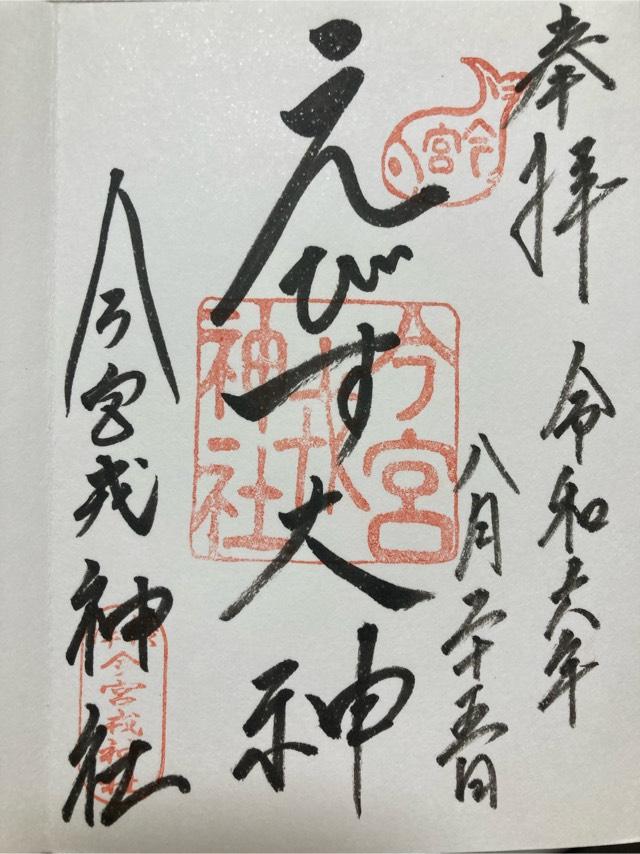 奉拝
令和六年
八月二十五日
今宮
えびす大神
今宮
戎
神社
今宮戎神社
今宮戎神社